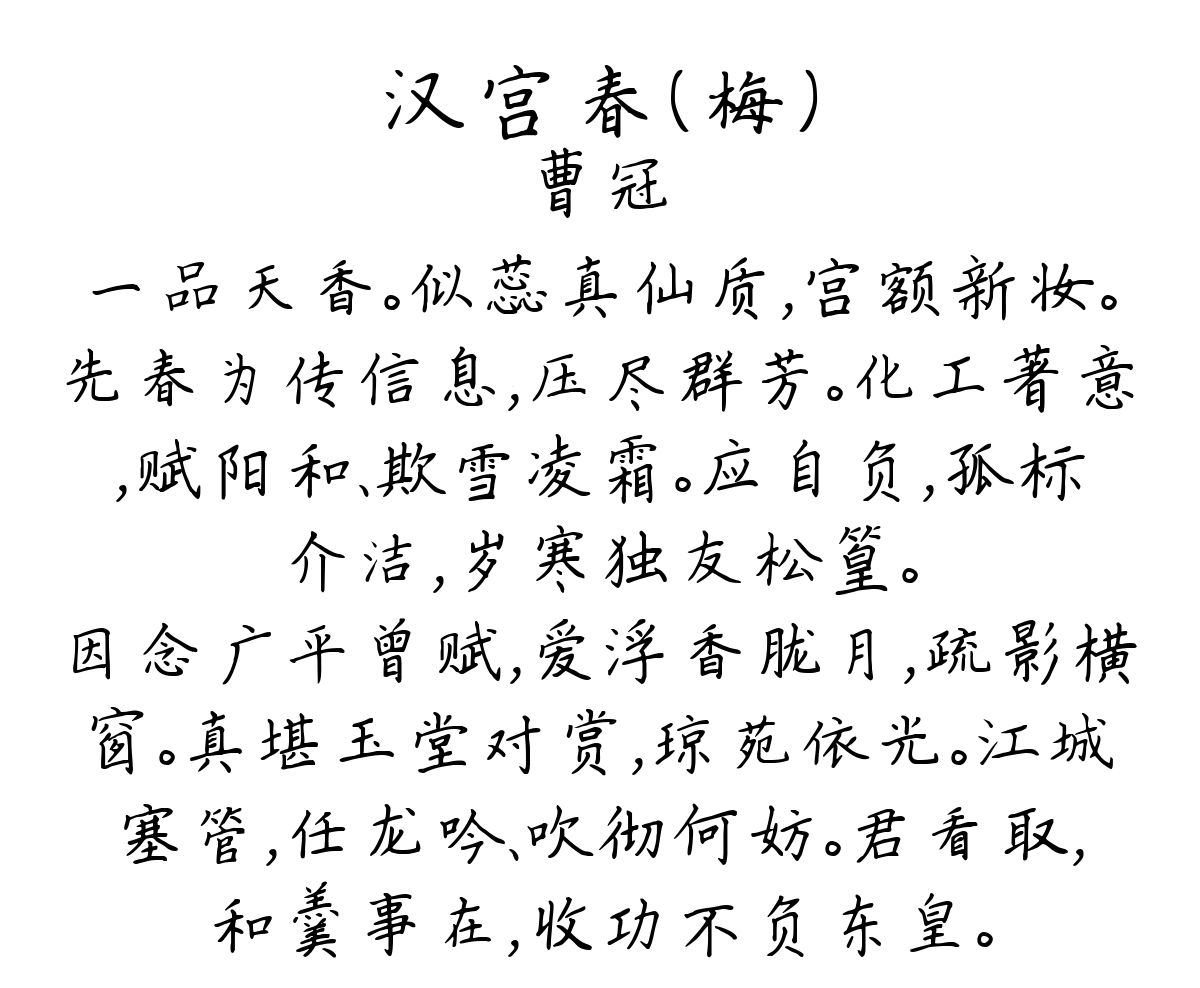 汉宫春(梅)
曹冠
一品天香。似蕊真仙质,宫额新妆。
先春为传信息,压尽群芳。化工著意
,赋阳和、欺雪凌霜。应自负,孤标
介洁,岁寒独友松篁。
因念广平曾赋,爱浮香胧月,疏影横
窗。真堪玉堂对赏,琼苑依光。江城
塞管,任龙吟、吹彻何妨。君看取,
和羹事在,收功不负东皇。